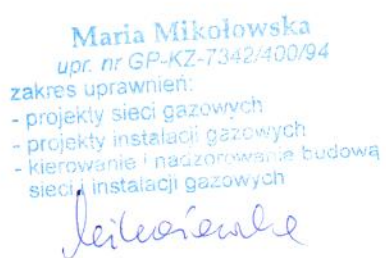 Maria Mikołowska
upr. nr GP-KZ-7342/400/94
zakres uprawnień:
- projekty sieci gazowych
- projekty instalacji gazowych
- kierowanie i nadzorowanie budową
sieci i instalacji gazowych